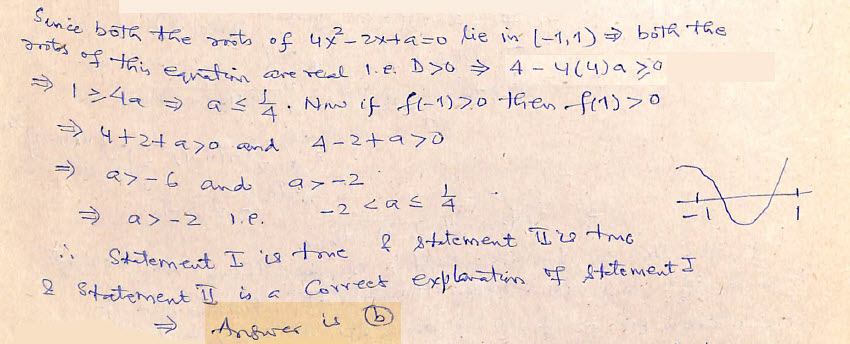 Since both the roots of 4x²-2x+a=0 lie in (-1,1) ⇒ both the
roots of this equation are real i.e. D>0 ⇒ 4-4(4)a ≥0
⇒ 1≥4a ⇒ a ≤ 1/4. Now if f(-1)>0 then f(1)>0
⇒ 4+2+a>0 and 4-2+a>0
⇒ a>-6 and a>-2
⇒ a>-2 i.e. -2<a≤ 1/4
-1 1
∴ Statement I is true & statement II is true
& Statement II is a Correct explanation of statement I
⇒ Answer is (b)